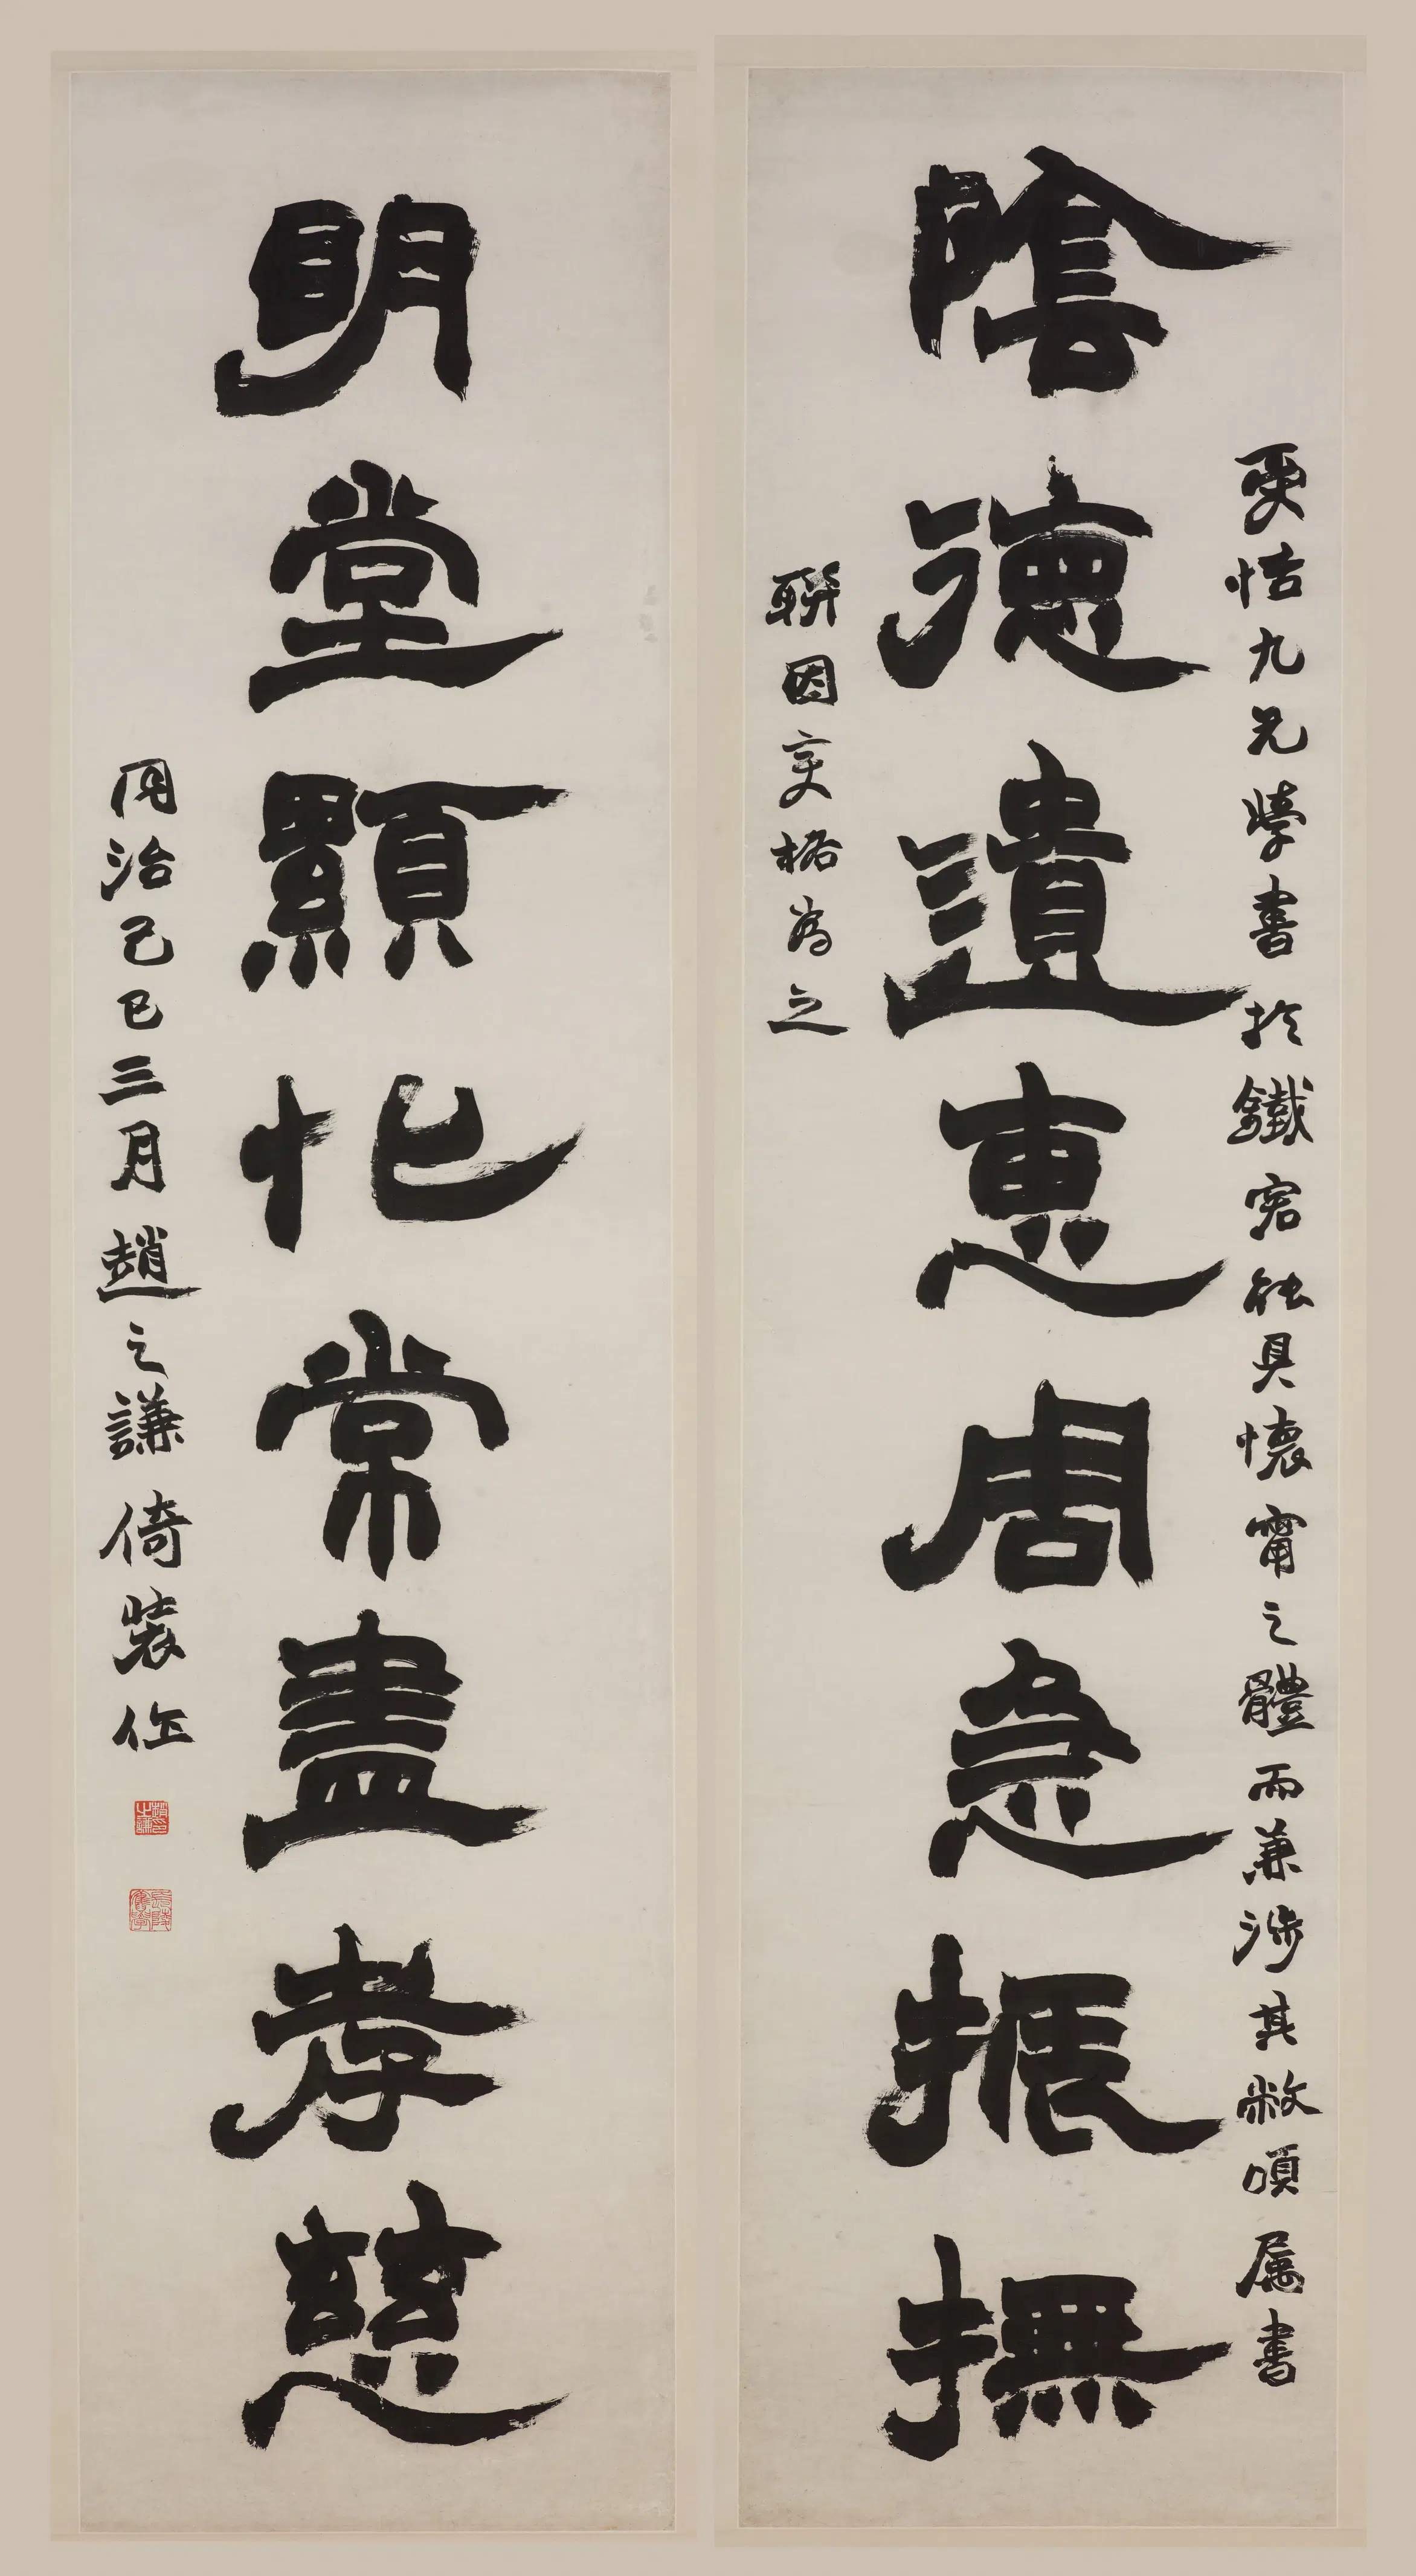 更恬九兄學書於鐵宕能具懷甯之體而兼涉其敝頃属書
陰德遺惠周急振撫
聯因变格為之
明堂顯化常盡孝慈
同治己巳三月趙之謙倚裝作
趙印之謙